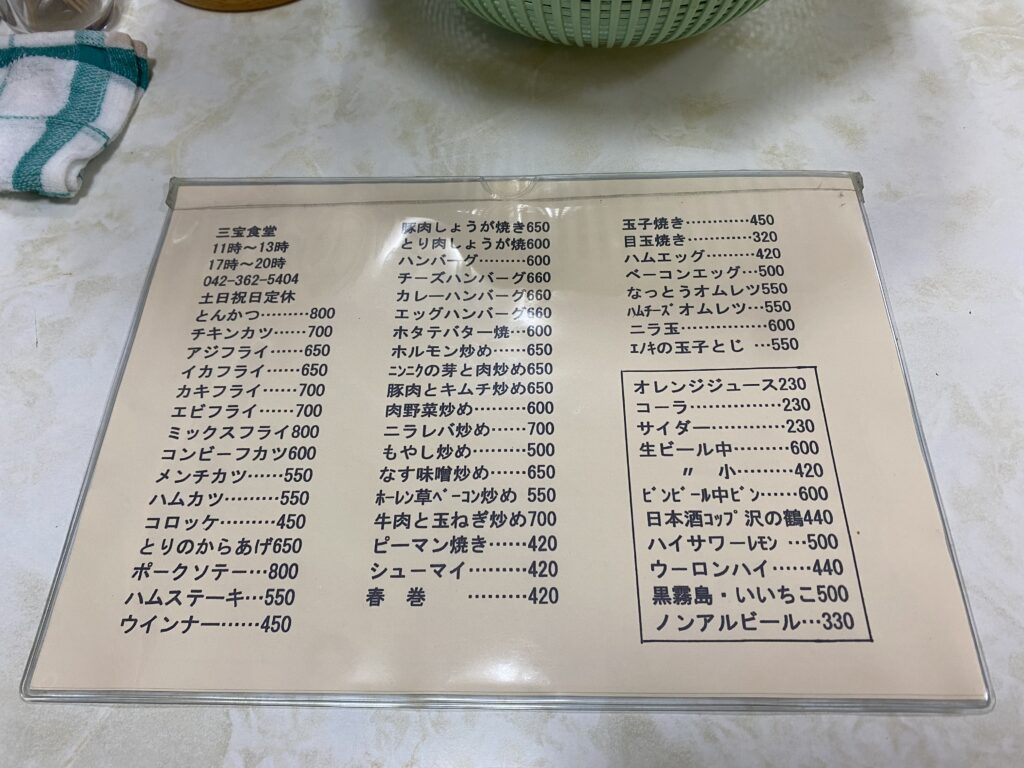 三宝食堂
11時～13時
17時～20時
042-362-5404
土日祝日定休
とんかつ………800
チキンカツ……700
アジフライ……650
イカフライ……650
カキフライ……700
エビフライ……700
ミックスフライ800
コンビーフカツ600
メンチカツ……550
ハムカツ………550
コロッケ………450
とりのからあげ650
ポークソテー…800
ハムステーキ…550
ウインナー……450
豚肉しょうが焼き650
とり肉しょうが焼600
ハンバーグ………600
チーズハンバーグ660
カレーハンバーグ660
エッグハンバーグ660
ホタテバター焼…600
ホルモン炒め……650
ﾆﾝﾆｸの芽と肉炒め650
豚肉とキムチ炒め650
肉野菜炒め………600
ニラレバ炒め……700
もやし炒め………500
なす味噌炒め……650
ﾎｰﾚﾝ草ﾍﾞｰｺﾝ炒め 550
牛肉と玉ねぎ炒め700
ピーマン焼き……420
シューマイ………420
春　巻　………420
玉子焼き…………450
目玉焼き…………320
ハムエッグ………420
ベーコンエッグ…500
なっとうオムレツ550
ﾊﾑﾁｰｽﾞオムレツ…550
ニラ玉……………600
ｴﾉｷの玉子とじ …550
オレンジジュース230
コーラ……………230
サイダー…………230
生ビール中………600
〃　小………420
ﾋﾞﾝﾋﾞｰﾙ中ﾋﾞﾝ……600
日本酒ｺｯﾌﾟ沢の鶴440
ハイサワーﾚﾓﾝ …500
ウーロンハイ……440
黒霧島・いいちこ500
ノンアルビール…330